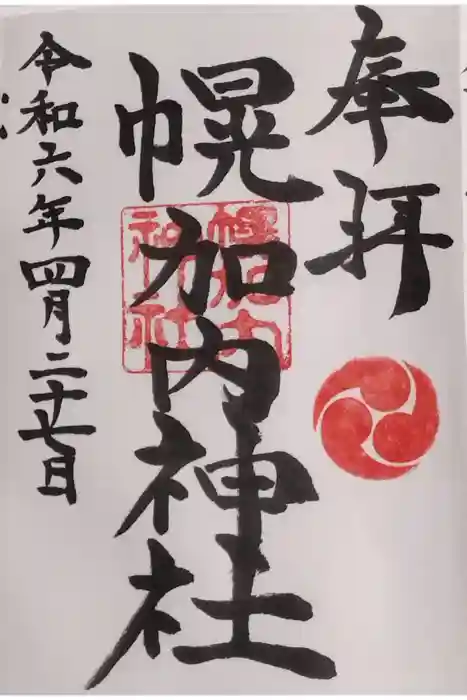 奉拝
幌加内神社
幌加内
神社
令和六年四月二十七日